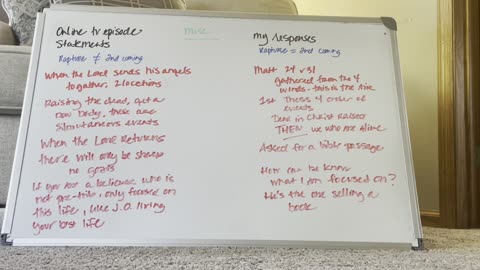 Online tv episode
Statements
Rapture ≠ 2nd coming
When the Lord sends his angels
together, 2 locations
Raising the dead, get a
new body, these are
simultaneous events
When the Lord Returns
there will only be sheep
no goats
If you are a believer who is
not pre-trib, only focused on
this life, like J.O. living
your best life
misc
my responses
Rapture = 2nd coming
Matt 24 v 31
gathered from the 4
winds - this is the
1st Thess 4 order of
events
Dead in Christ raised
THEN we who are alive
Asked for a bible passage
How can he know
what I am focused on?
He's the one selling a
book